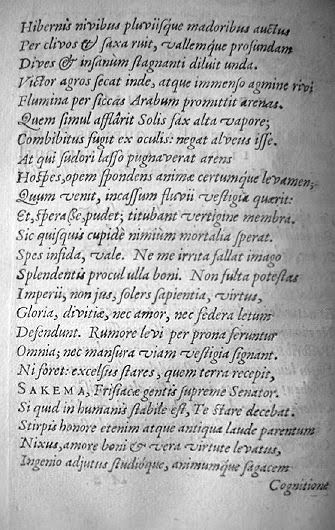 Hibernis nivibus pluviisque madoribus auctus
Per clivos & saxa ruit, vallemque profundam
Dives & insanum stagnanti diluit unda.
Victor agros secat inde, atque immenso agmine rivi
Flumina per siccas Arabum promittit arenas.
Quem simul afflârit Solis sax alta vapore;
Combibitus fugit ex oculis: negat alveus isse.
At qui sudori lasso pugnaverat arens
Hospes, opem spondens animæ certumque levamen;
Quum venit, incassum fluvii vestigia quærit:
Et, sperasse, pudet; titubant vertigine membra.
Sic quisquis cupidè nimiùm mortalia sperat.
Spes infida, vale. Ne me irrita fallat imago
Splendentis procul ulla boni. Non fulta potestas
Imperii, non jus, solers sapientia, virtus,
Gloria, divitiæ, nec amor, nec federa letum
Defendunt. Rumore levi per prona feruntur
Omnia; nec mansura viam vestigia signant.
Ni foret: excelsus stares, quem terra recepit,
SAKEMA, Frisiacæ gentis supreme Senator.
Si quid in humanis stabile est, Te stare decebat.
Stirpis honore etenim atque antiqua laude parentum
Nixus, amore boni & vera virtute levatus,
Ingenio adjutus studióque, animumque sagacem
Cognitione